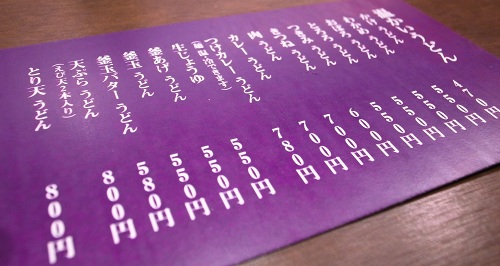 温かいうどん
かけ うどん
わかめ うどん
とろろ うどん
きつね うどん
肉 うどん
700円
カレー うどん
700円
つけカレー うどん
780円
生じょうゆ うどん
550円
釜あげ うどん
550円
釜玉 うどん
550円
釜玉バター うどん
580円
天ぷら うどん
(えび天2本入り)
800円
とり天 うどん
800円